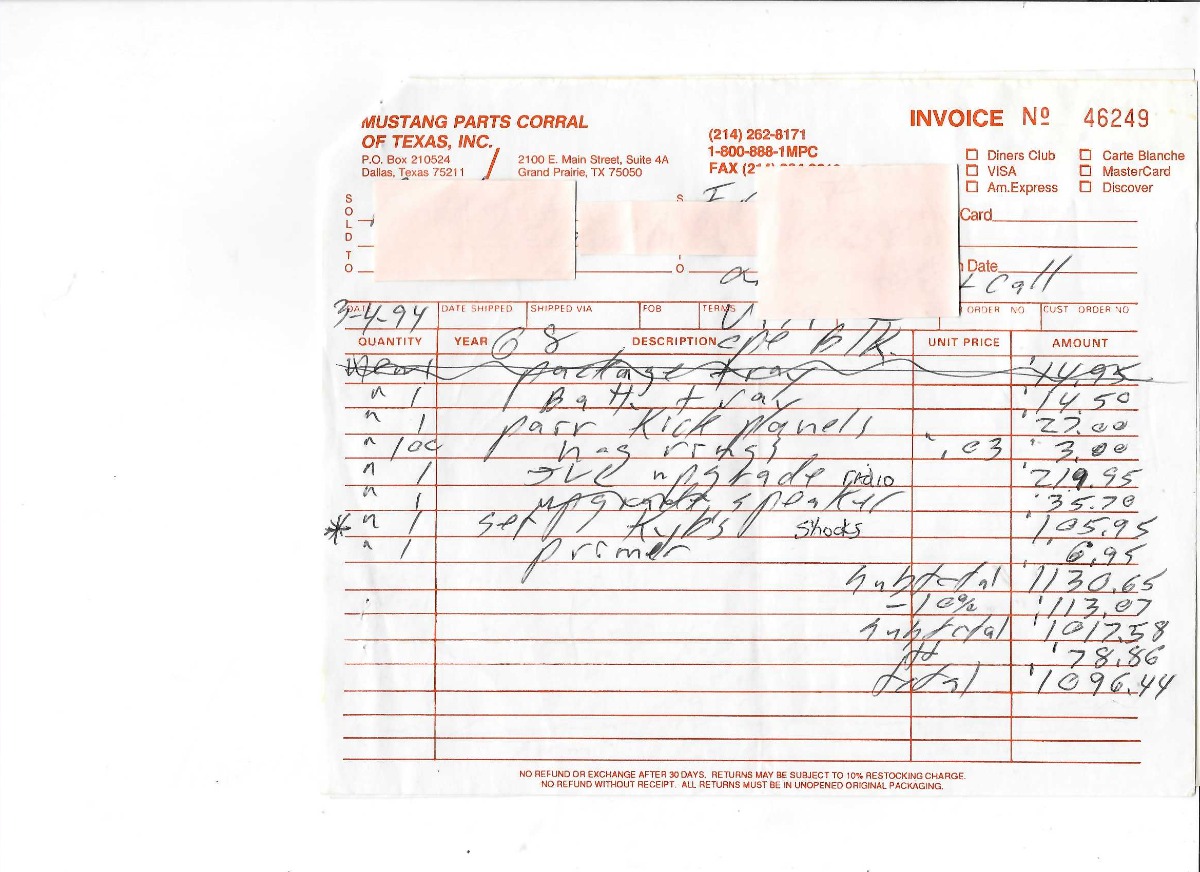 MUSTANG PARTS CORRAL
OF TEXAS, INC.
P.O. Box 210524
Dallas, Texas 75211
2100 E. Main Street, Suite 4A
Grand Prairie, TX 75050
(214) 262-8171
1-800-888-1MPC
FAX (21
INVOICE Nº 46249
Diners Club Carte Blanche
VISA MasterCard
Am.Express Discover
SOLD TO
Card
Date
Call
3-4-94 DATE SHIPPED SHIPPED VIA FOB TERMS ORDER NO CUST ORDER NO
QUANTITY YEAR 68 DESCRIPTION cpe blk. UNIT PRICE AMOUNT
New 1 package tray 14.95
" 1 Batt tray 14.50
" 1 pair Kick panels 27.00
" 100 hog rings .03 3.00
" 1 JVC upgrade radio 219.95
" 1 upgrade speaker 35.70
* " 1 set Kyb's Shocks 105.95
" 1 primer 6.95
subtotal 1130.65
-10% 113.07
subtotal 1017.58
78.86
total 1096.44
NO REFUND OR EXCHANGE AFTER 30 DAYS. RETURNS MAY BE SUBJECT TO 10% RESTOCKING CHARGE.
NO REFUND WITHOUT RECEIPT. ALL RETURNS MUST BE IN UNOPENED ORIGINAL PACKAGING.